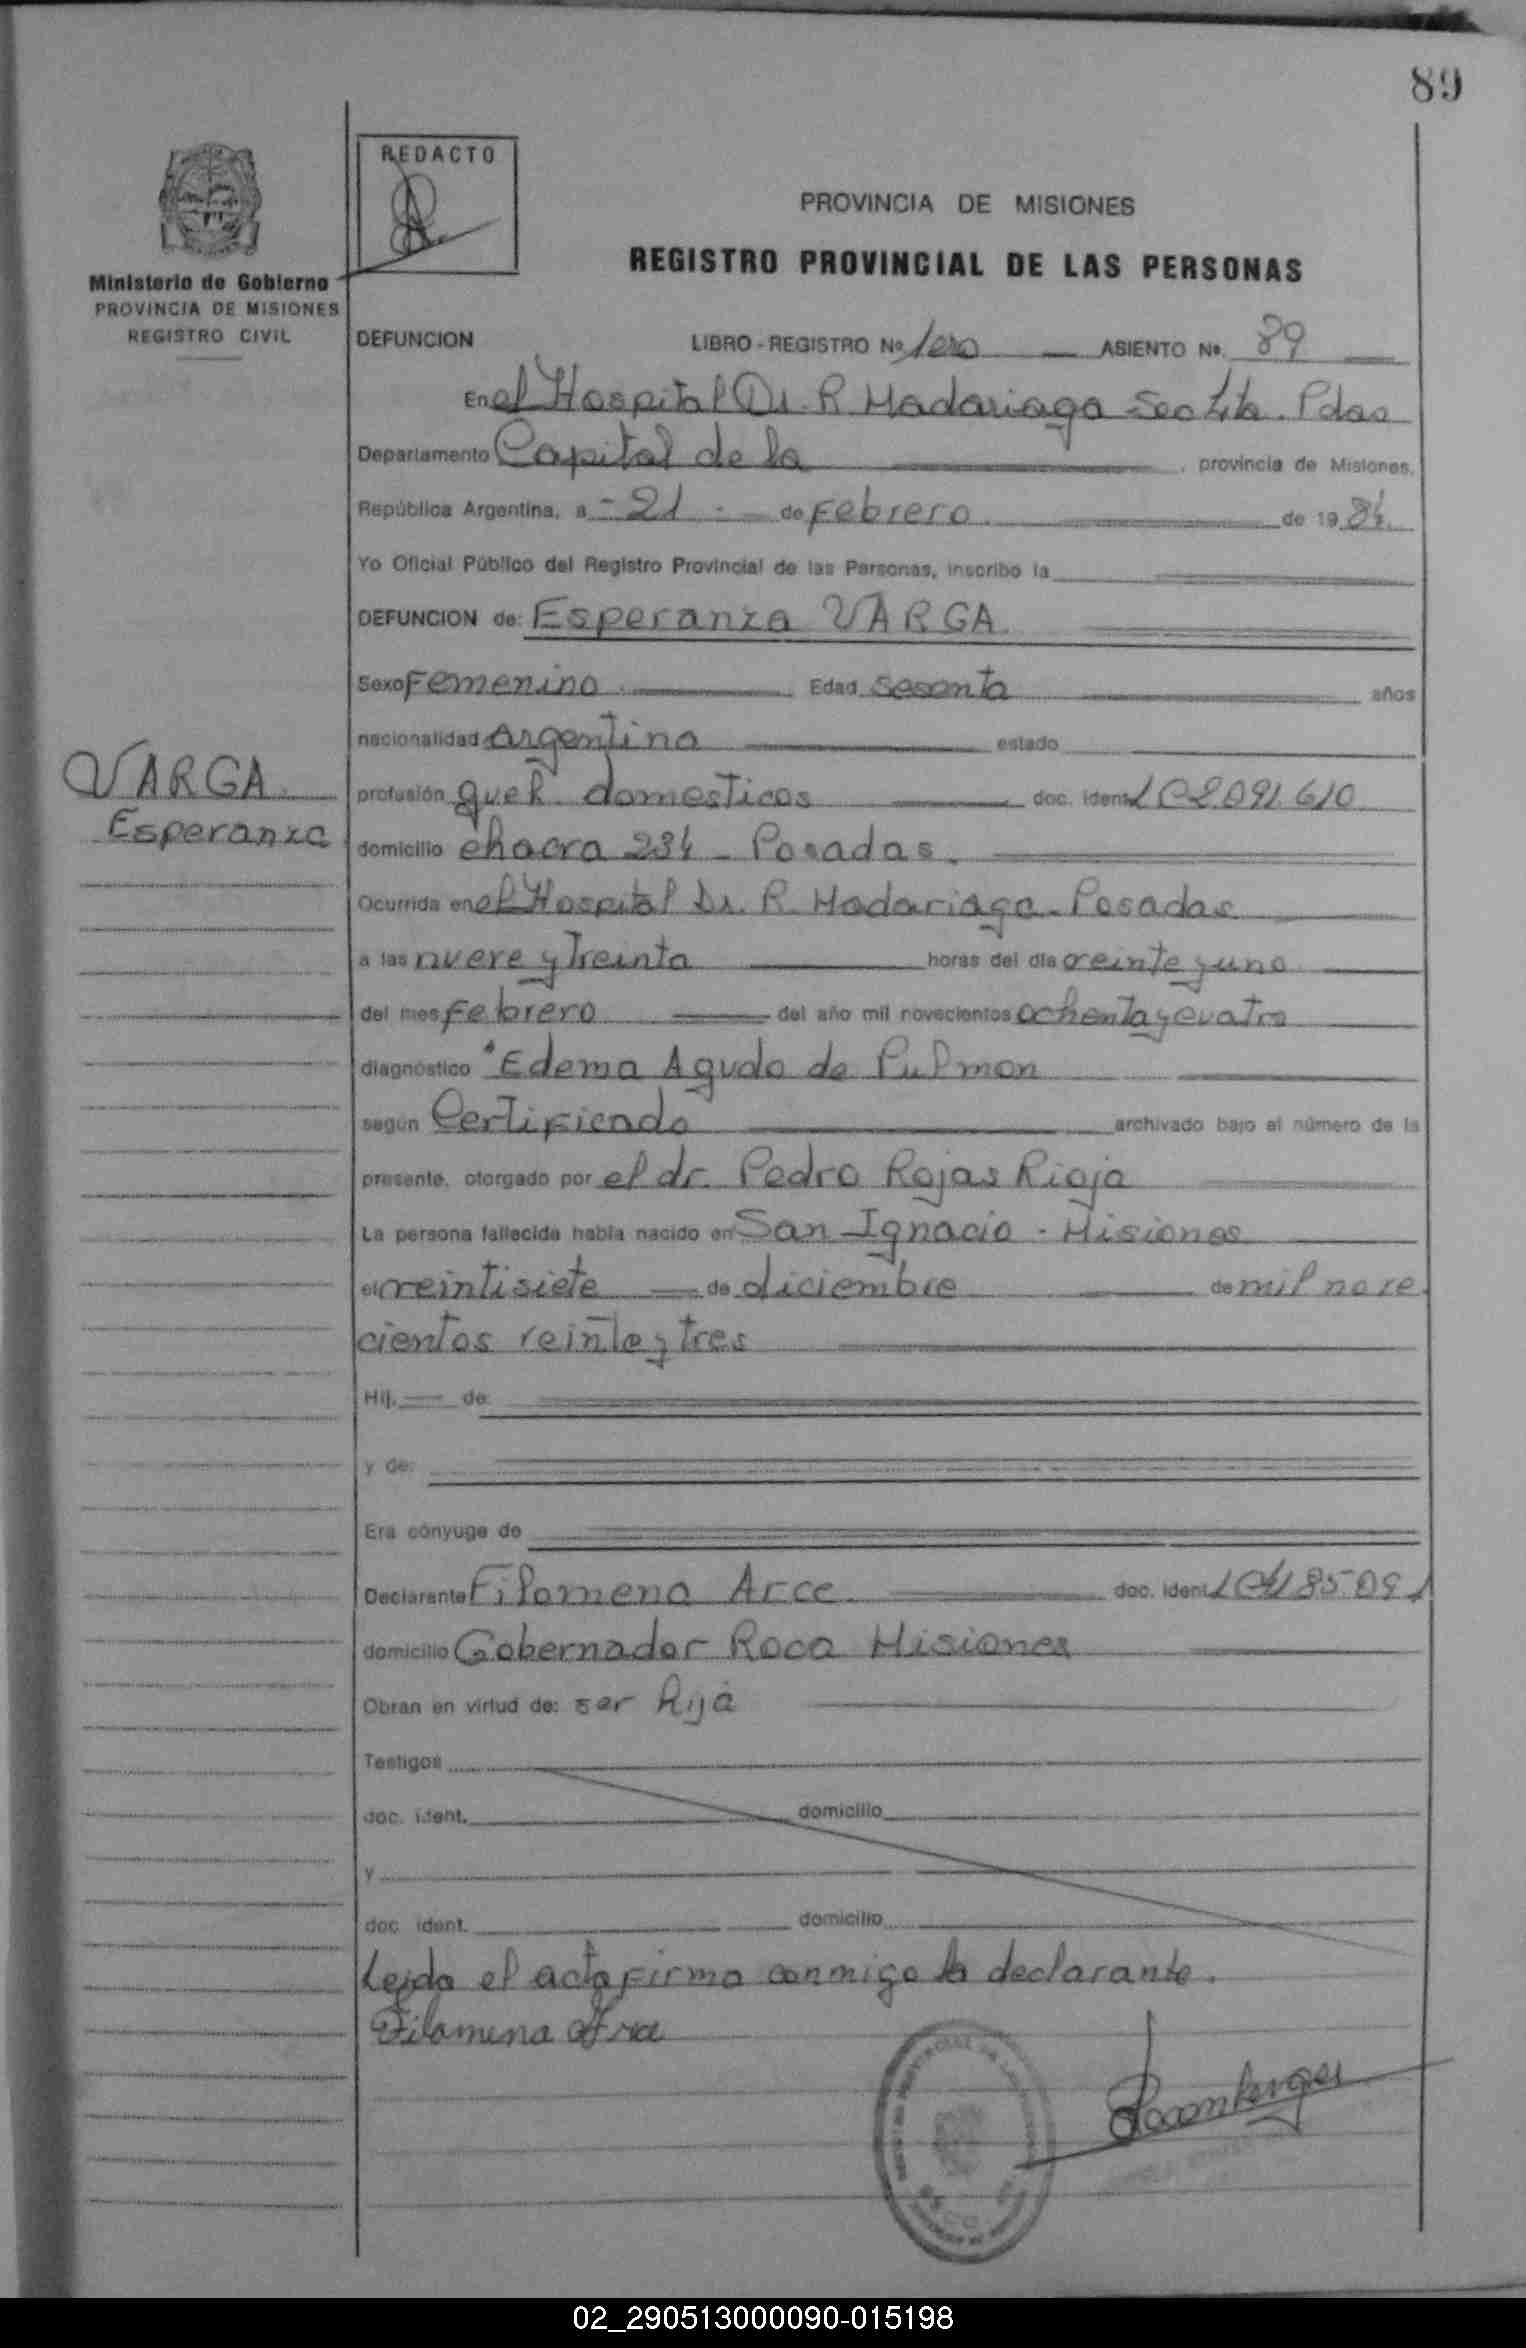 89
REDACTO
PROVINCIA DE MISIONES
REGISTRO PROVINCIAL DE LAS PERSONAS
Ministerio de Gobierno
PROVINCIA DE MISIONES
REGISTRO CIVIL
DEFUNCION LIBRO - REGISTRO Nº 1ero ASIENTO Nº. 89
En el Hospital Dr. R. Madariaga Sec Pdas
Departamento Capital de la provincia de Misiones.
República Argentina, a - 21 - de Febrero de 1984
Yo Oficial Público del Registro Provincial de las Personas, inscribo la
DEFUNCION de: Esperanza VARGA
Sexo Femenino Edad sesenta años
nacionalidad argentina estado
VARGA
Esperanza
profesión queh. domesticos doc. ident LC 2.091.610
domicilio chacra 234 - Posadas.
Ocurrida en el Hospital Dr. R. Madariaga - Posadas
a las nueve y treinta horas del día veinte y uno
del mes Febrero del año mil novecientos ochenta y cuatro
diagnóstico "Edema Agudo de Pulmon
según Certificado archivado bajo el número de la
presente, otorgado por el dr. Pedro Rojas Rioja
La persona fallecida había nacido en San Ignacio - Misiones
el veintisiete de diciembre de mil nove
cientos veinte y tres
Hij. de:
y de:
Era cónyuge de
Declarante Filomena Arce doc. ident LC
domicilio Gobernador Roca Misiones
Obran en virtud de: ser hija
Testigos
doc. ident. domicilio
y
doc. ident. domicilio
Leida el acta firma conmigo la declarante.
Filomena Arce
02_290513000090-015198